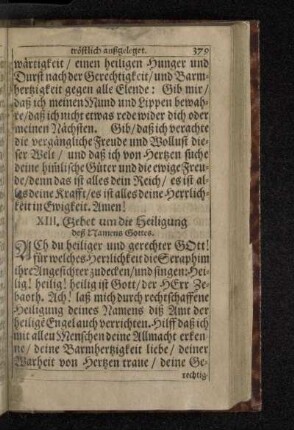 tröstlich außgeleget. 379
wärtigkeit/ einen heiligen Hunger und
Durst nach der Gerechtigkeit/ und Barm-
hertzigkeit gegen alle Elende: Gib mir/
daß ich meinen Mund und Lippen bewah-
re/ daß ich nicht etwas rede wider dich oder
meinen Nächsten. Gib/ daß ich verachte
die vergängliche Freude und Wollust die-
ser Welt/ und daß ich von Hertzen suche
deine him̃lische Güter und die ewige Freu-
de/ denn das ist alles dein Reich/ es ist al-
les deine Krafft/ es ist alles deine Herrlich-
keit in Ewigkeit. Amen!
XIII. Gebet um die Heiligung
deß Namens Gottes.
ACh du heiliger und gerechter GOtt!
für welches Herrlichkeit die Seraphim
ihre Angesichter zudecken/ und singen: Hei-
lig! heilig! heilig ist Gott/ der HErr Ze-
baoth. Ach! laß mich durch rechtschaffene
Heiligung deines Namens diß Amt der
heiligẽ Engel auch verrichten. Hilff daß ich
mit allen Menschen deine Allmacht erken-
ne/ deine Barmhertzigkeit liebe/ deiner
Warheit von Hertzen traue/ deine Ge-
rechtig-